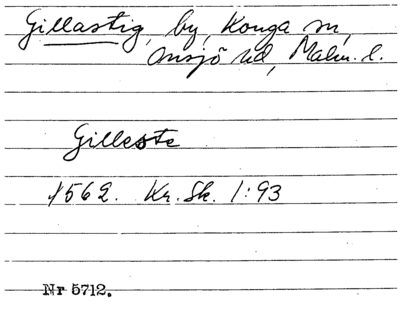 Gillastig, by, Konga sn,
Onsjö hd, Malm. l.
Gilleste
1562. Kr. Sk. 1:93
Nr 5712.